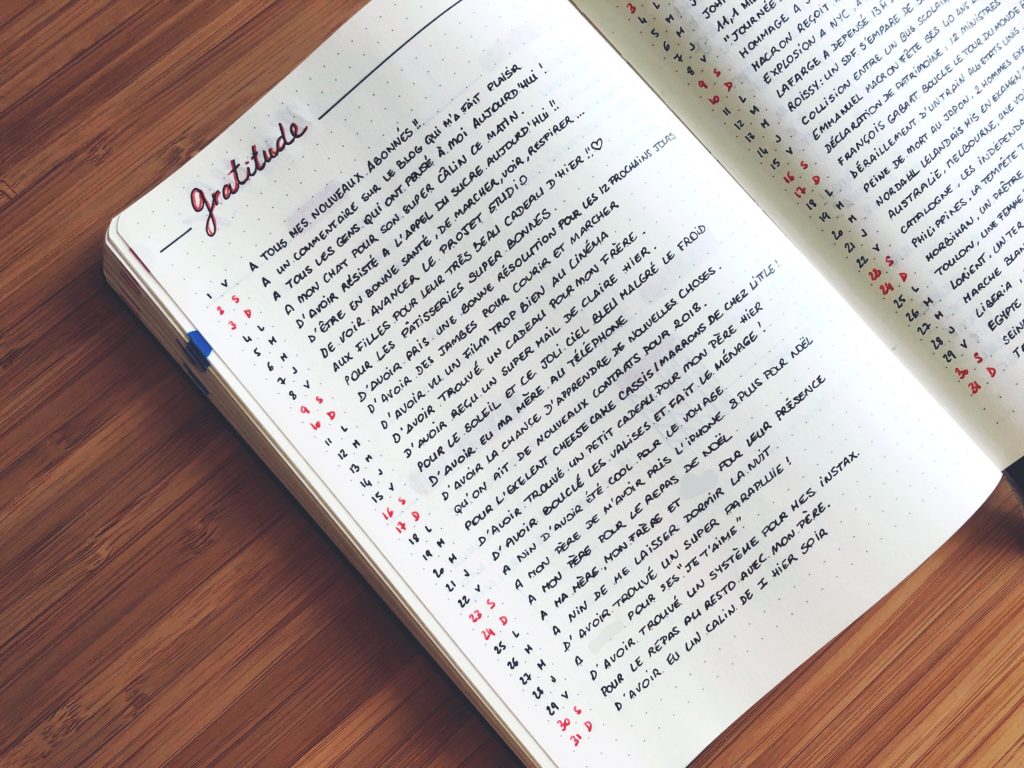 gratitude
1 V A TOUS MES NOUVEAUX ABONNÉES !!
2 S UN COMMENTAIRE SUR LE BLOG QUI M'A FAIT PLAISIR
3 D A TOUS LES GENS QUI ONT PENSÉ À MOI AUJOURD'HUI !
4 L A MON CHAT POUR SON SUPER CÂLIN CE MATIN.
5 M D'AVOIR RÉSISTÉ À L'APPEL DU SUCRE AUJOURD'HUI !!
6 M D'ÊTRE EN BONNE SANTÉ, DE MARCHER, VOIR, RESPIRER...
7 J DE VOIR AVANCER LE PROJET STUDIO
8 V AUX FILLES POUR LEUR TRÈS BEAU CADEAU D'HIER !! ♡
9 S POUR LES PATISSERIES SUPER BONNES
10 D D'AVOIR PRIS UNE BONNE RÉSOLUTION POUR LES 12 PROCHAINS JOURS
11 L D'AVOIR DES JAMBES POUR COURIR ET MARCHER
12 M D'AVOIR VU UN FILM TROP BIEN AU CINÉMA
13 M D'AVOIR TROUVÉ UN CADEAU POUR MON FRÈRE.
14 J D'AVOIR REÇU UN SUPER MAIL DE CLAIRE HIER.
15 V POUR LE SOLEIL ET CE JOLI CIEL BLEU MALGRÉ LE FROID
16 S D'AVOIR EU MA MÈRE AU TÉLÉPHONE
17 D D'AVOIR LA CHANCE D'APPRENDRE DE NOUVELLES CHOSES.
18 L QU'ON AIT DE NOUVEAUX CONTRATS POUR 2018.
19 M POUR L'EXCELENT CHEESECAKE CASSIS/MARRONS DE CHEZ LITTLE !
20 M D'AVOIR TROUVÉ UN PETIT CADEAU POUR MON PÈRE HIER
21 J D'AVOIR BOUCLÉ LES VALISES ET FAIT LE MÉNAGE !
22 V A NIN D'AVOIR ÉTÉ COOL POUR LE VOYAGE
23 S A MON PÈRE DE M'AVOIR PRIS L'IPHONE 8 PLUS POUR NOËL
24 D A MON PÈRE POUR LE REPAS DE NOËL
25 L A MA MÈRE, MON FRÈRE ET LEUR PRÉSENCE
26 M A NIN DE ME LAISSER DORMIR LA NUIT
27 M D'AVOIR TROUVÉ UN SUPER PARAPLUIE !
28 J A POUR SES "JE T'AIME"
29 V D'AVOIR TROUVÉ UN SYSTÈME POUR MES INSTAX.
30 S POUR LE REPAS AU RESTO AVEC MON PÈRE.
31 D D'AVOIR EU UN CALIN DE I HIER SOIR
3
4 L
5 M "JOURNÉE
6 M HOMMAGE A
7 J MACRON REÇOIT
8 V EXPLOSION A NYC,
9 S LAFARGE A DEFENSE
10 D ROISSY: UN SDF S'EMPARE DE
11 L COLLISION ENTRE UN BUS SCOLAIRE
12 M EMMANUEL MACRON FÊTE SES 40 ANS
13 M DÉCLARATION DE PATRIMOINE: 12 MINISTRES
14 J FRANÇOIS GABART BOUCLE LE TOUR DU MONDE
15 V DÉRAILLEMENT D'UN TRAIN AU ETATS UNIS
16 S PEINE DE MORT AU JAPON: 2 HOMMES
17 D NORDAHL LELANDAIS MIS EN EXAMEN
18 L AUSTRALIE, MELBOURNE,
19 M CATALOGNE, LES INDEPENDA
20 M PHILIPPINES, LA TEMPÊTE
21 J MORBIHAN, UN
22 V TOULON, UNE FEMME
23 S LORIENT, UN
24 D MARCHE BLANC
25 L LIBERIA,
26 M EGYPTE,
27 M
28 J
29 V
30 S
31 D